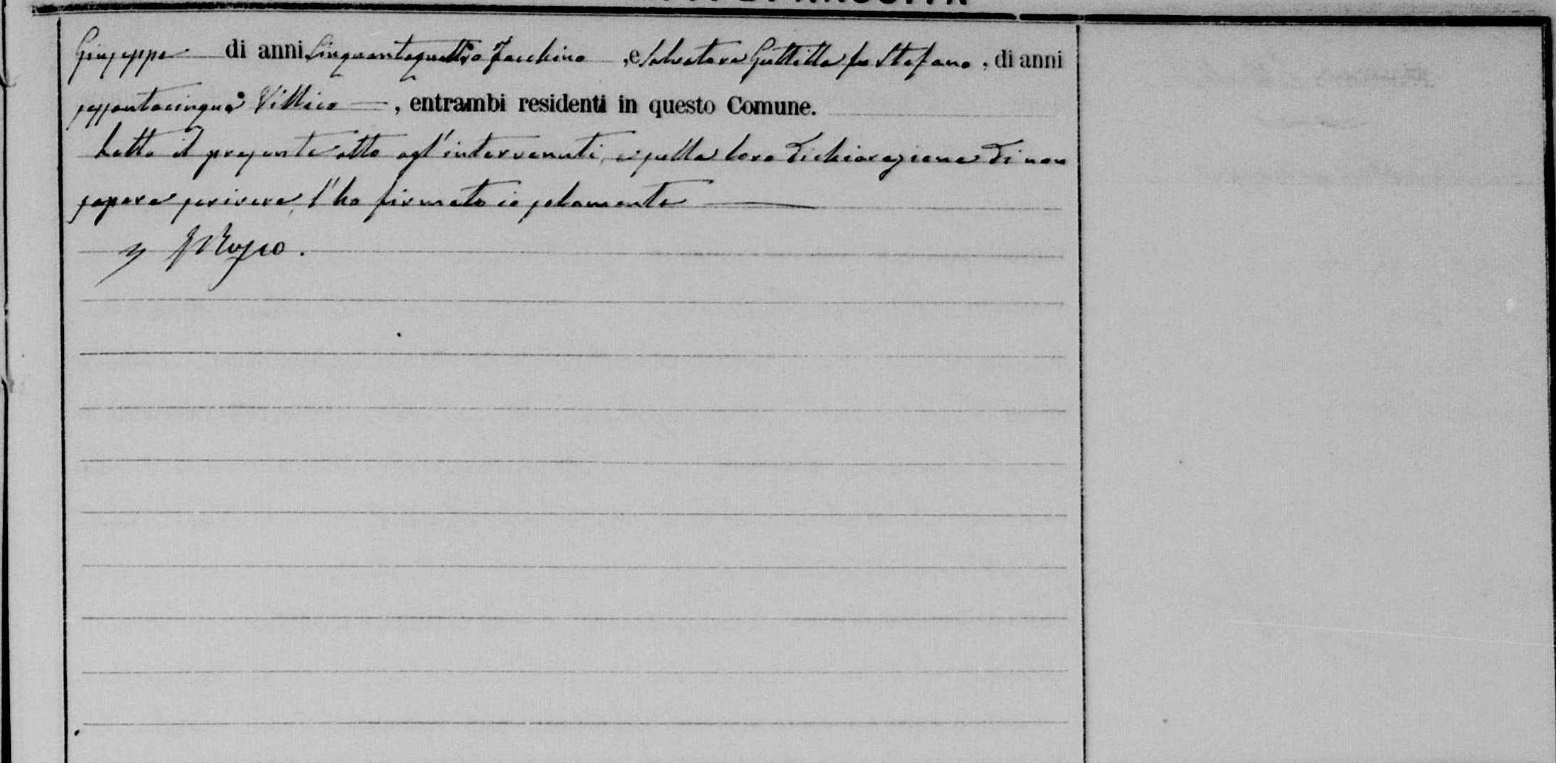 Giuseppe di anni Cinquantaquattro Facchino, e Salvatore Guttilla fu Stefano, di anni
sessantacinque Villico —, entrambi residenti in questo Comune.
Letto il presente atto agl'intervenuti, e sulla loro dichiarazione di non
sapere scrivere, l'ho firmato io solamente —